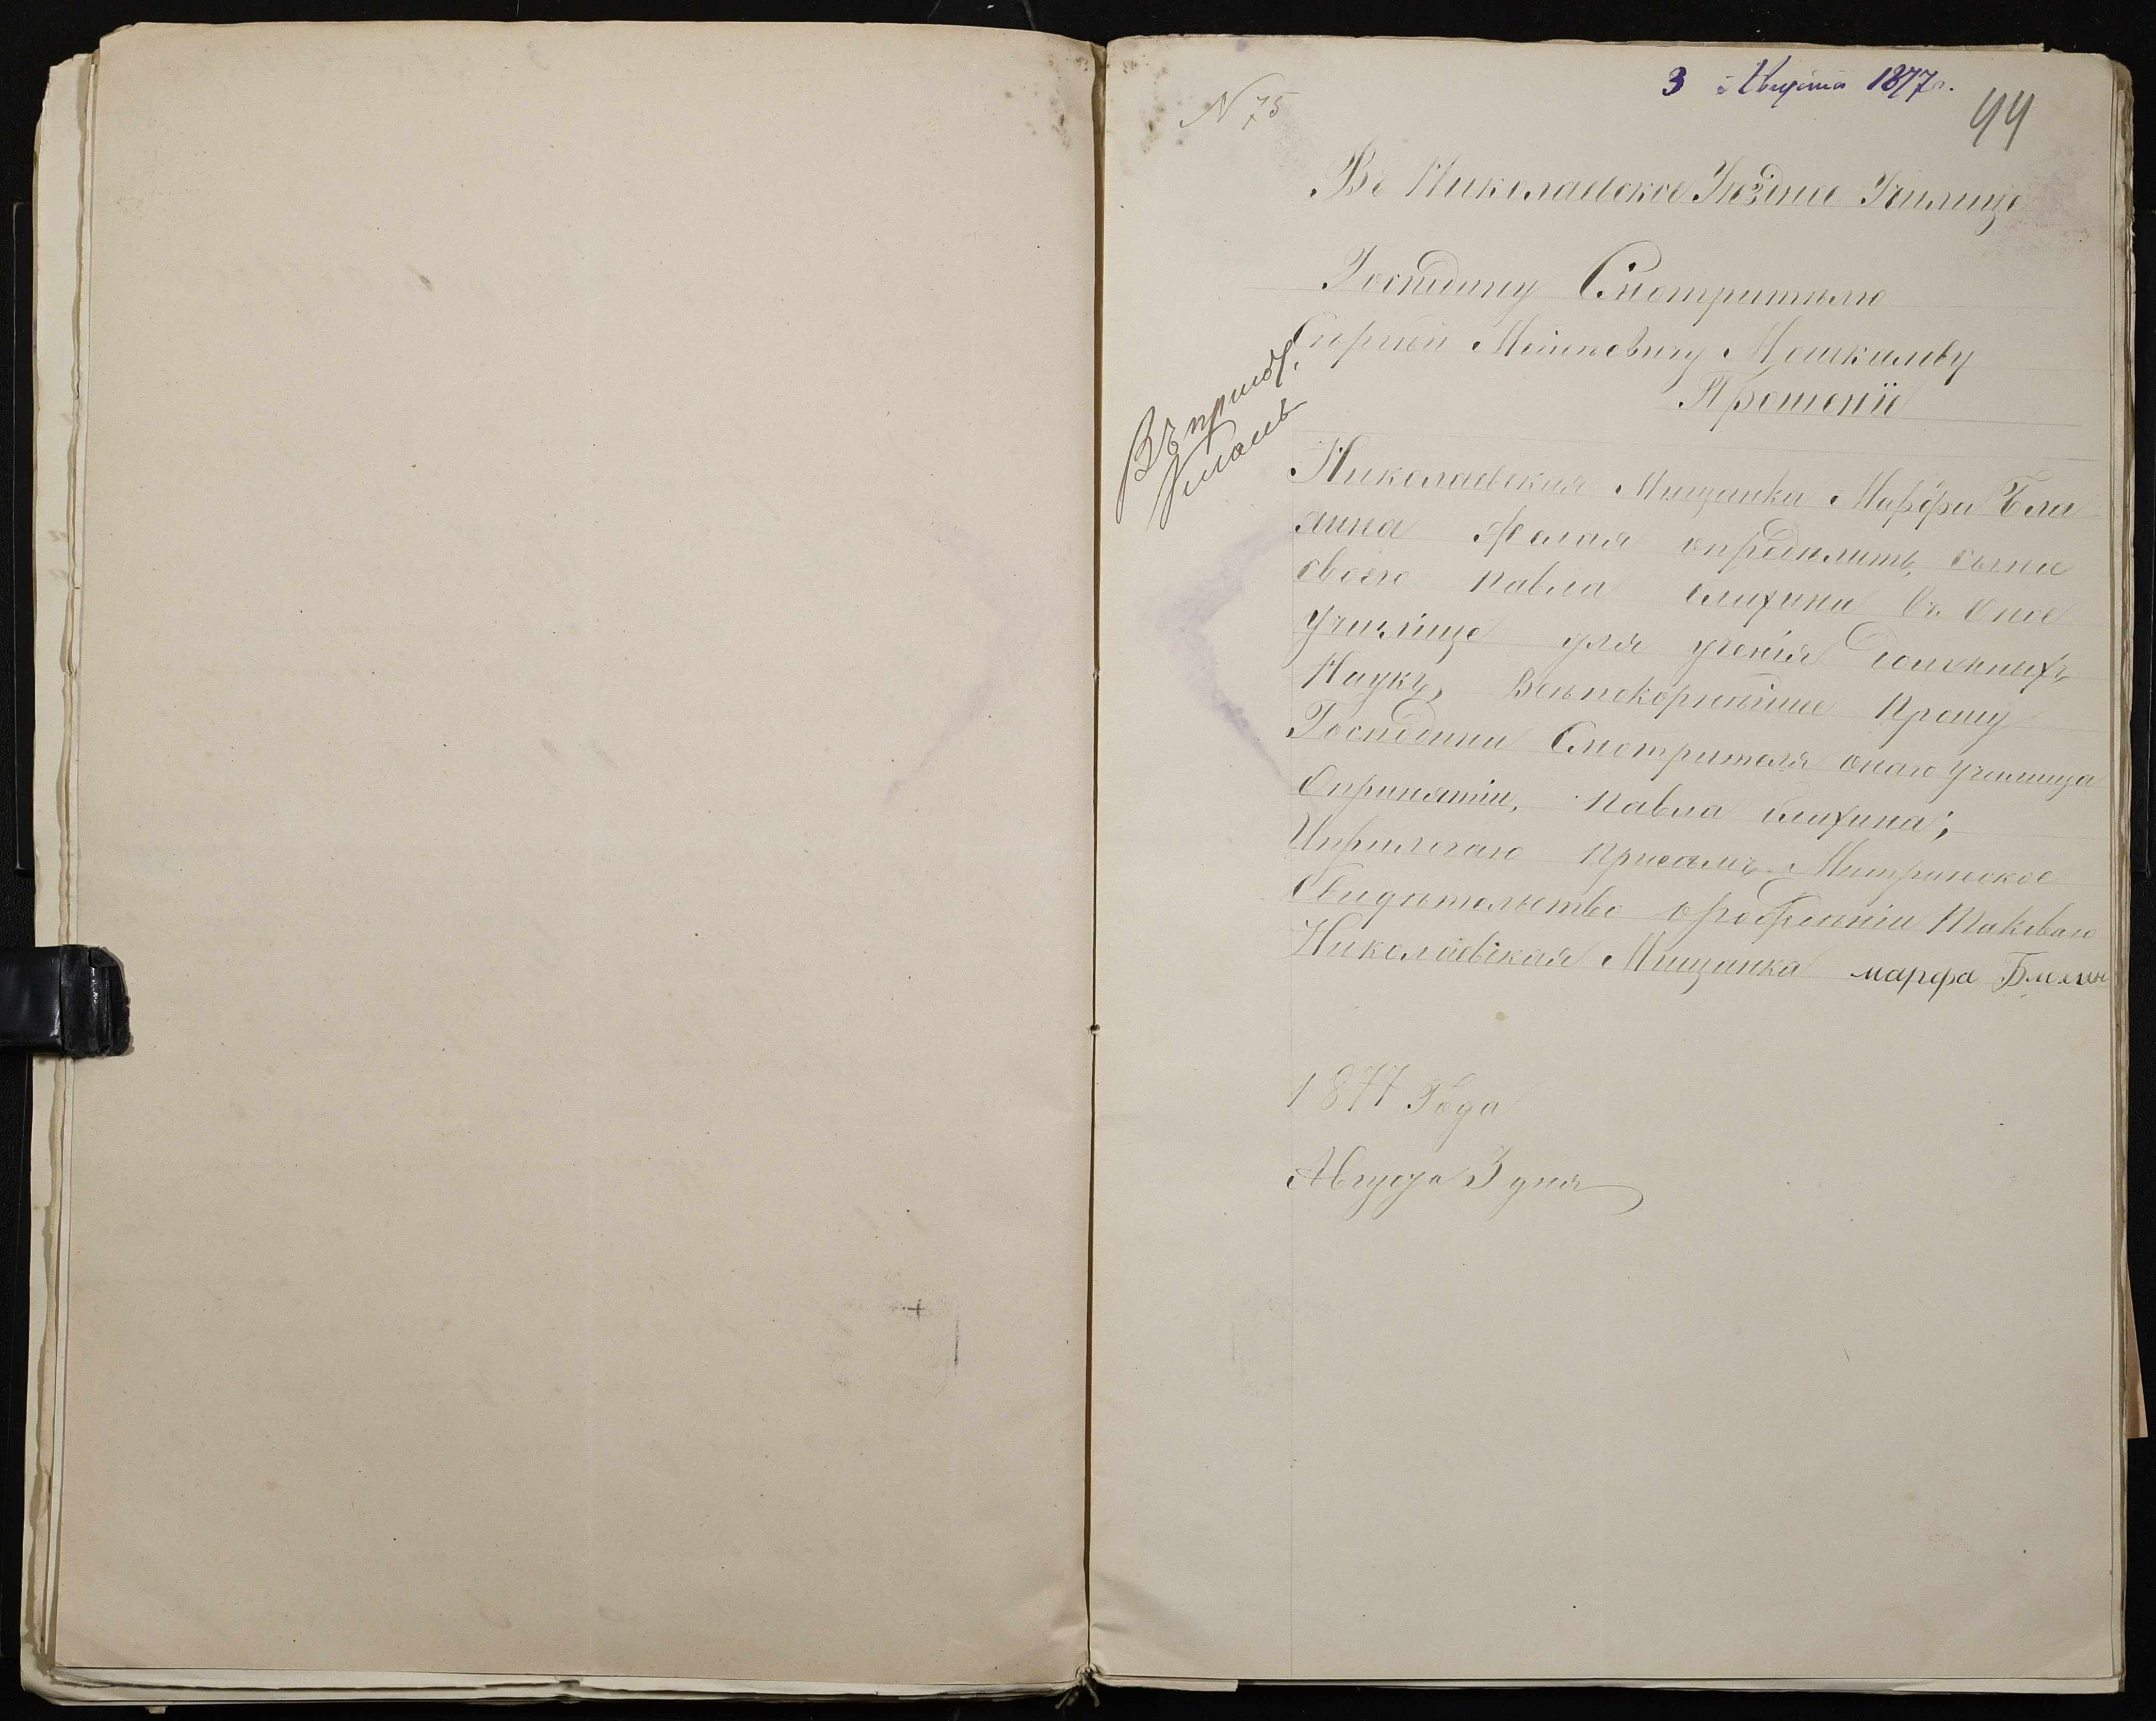 3 Августа 1877 г.
99
N 75
Въ Николаевское Уѣздное Училище
Господину Смотрителю
Сергѣю Мошкалеву
Прошеніе
Въ приг.
Николаевская Мищанка Марфа Бла
хина Желая определить, сына
своего Павла Блахина въ Оное
училище для ученія
Наукъ, Всепокорнейше Прошу
Господина Смотрителя онаго училища
Опринятіи, Павла Блахина;
Иприлагаю Присемъ Метрическое
Свидетельство орождении Таковаго
Николаевская Мищанка марфа Блахин
1877 Года
Августа 3 дня